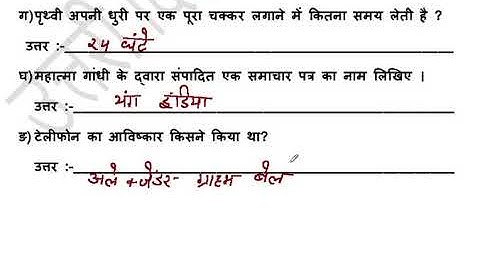 ग)पृथ्वी अपनी धुरी पर एक पूरा चक्कर लगाने में कितना समय लेती है ?
उत्तर :- २४ घंटे
घ)महात्मा गांधी के द्वारा संपादित एक समाचार पत्र का नाम लिखिए ।
उत्तर :- यंग इंडिया
ङ)टेलीफोन का आविष्कार किसने किया था?
उत्तर :-
अलेक्जेंडर- ग्राहम बेल